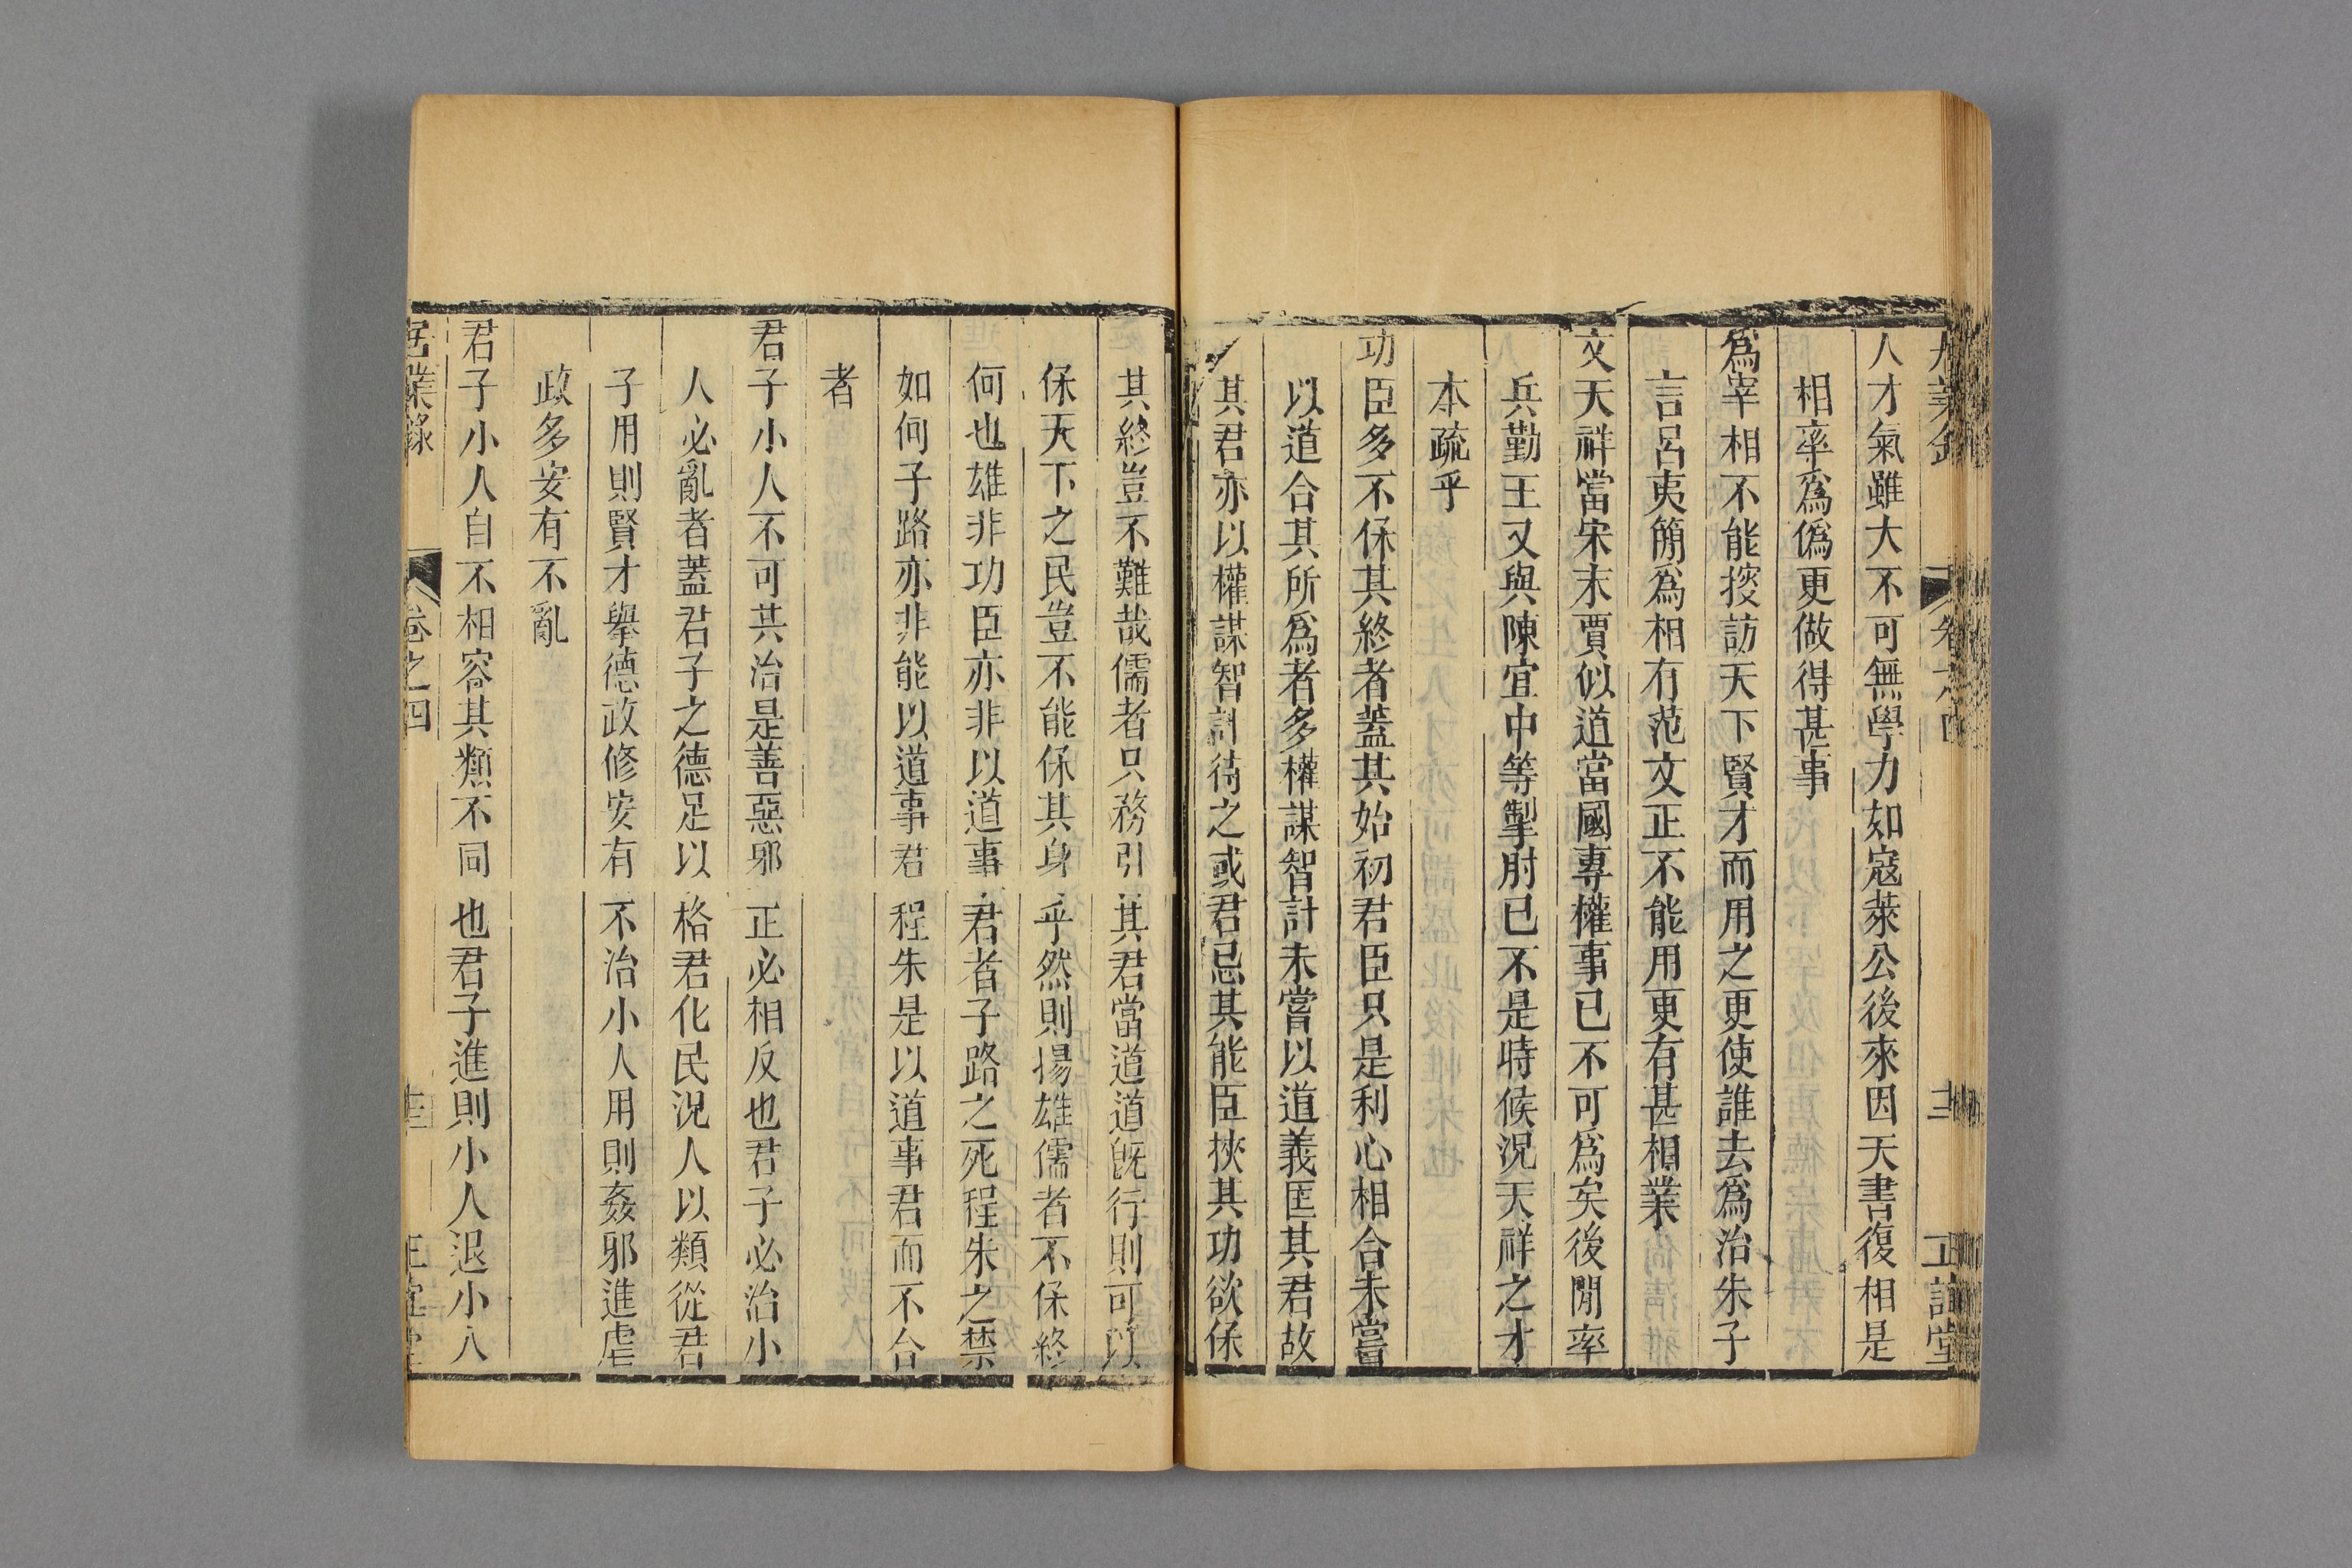 人才氣雖大不可無學力如寇萊公後來因天書復相是
相率爲僞更做得甚事
爲宰相不能搜訪天下賢才而用之更使誰去爲治朱子
言呂夷簡爲相有范文正不能用更有甚相業
文天祥當宋末賈似道當國專權事已不可爲矣後閒率
兵勤王又與陳宜中等掣肘已不是時候況天祥之才
本疏乎
功臣多不保其終者蓋其始初君臣只是利心相合未嘗
以道合其所爲者多權謀智計未嘗以道義匡其君故
其君亦以權謀智計待之或君忌其能臣挾其功欲保
其終豈不難哉儒者只務引其君當道道旣行則可以
保天下之民豈不能保其身乎然則揚雄儒者不保終
何也雄非功臣亦非以道事君者子路之死程朱之禁
如何子路亦非能以道事君程朱是以道事君而不合
者
君子小人不可共治是善惡邪正必相反也君子必治小
人必亂者蓋君子之德足以格君化民況人以類從君
子用則賢才舉德政修安有不治小人用則姦邪進虐
政多安有不亂
君子小人自不相容其類不同也君子進則小人退小人
居業錄 卷之四 正誼堂